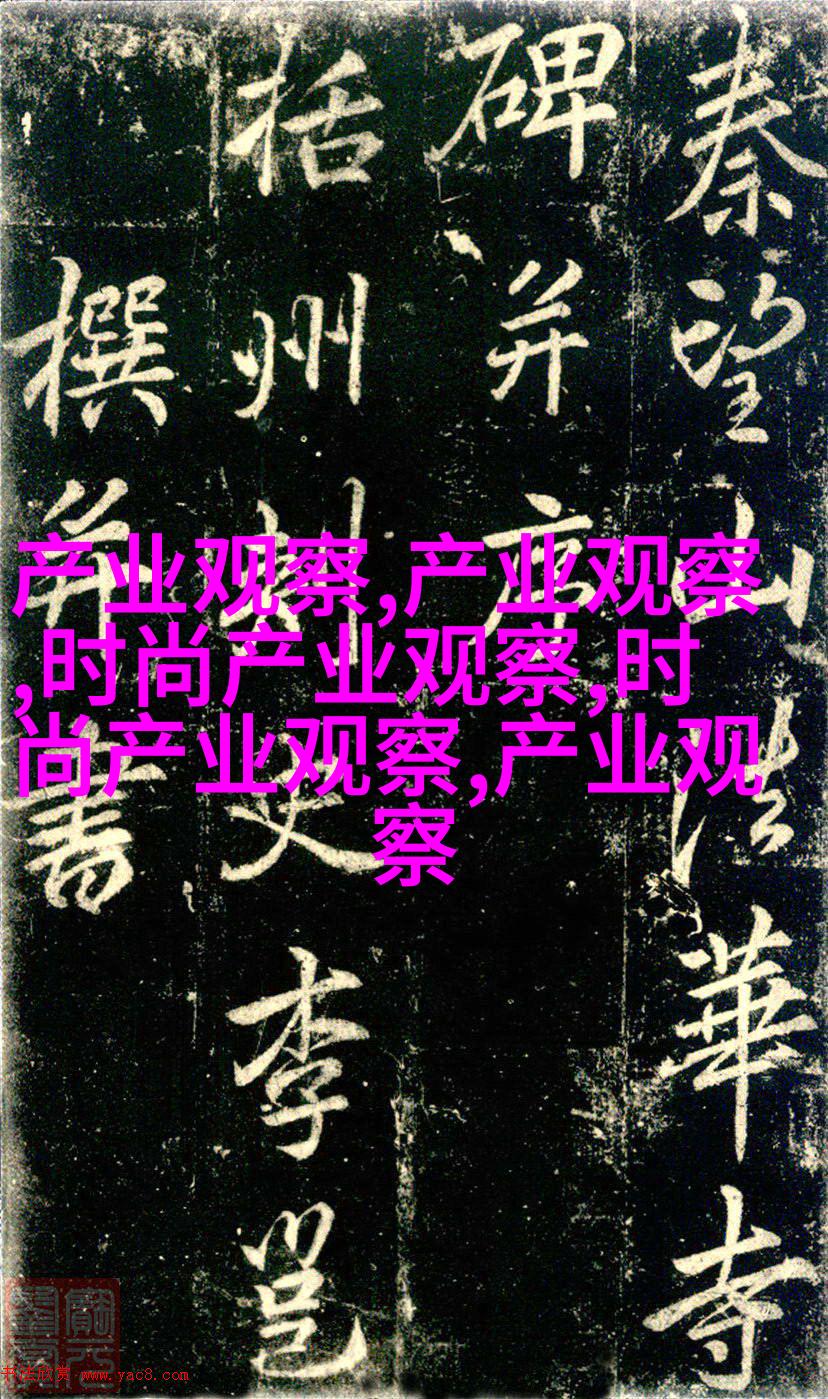 秦望山法華寺
碑并序
括州刺史李邕
撰并書
产业观察,产业观察
,时尚产业观察,时
尚产业观察,产业观
察
书法欣赏 www.yac8.com